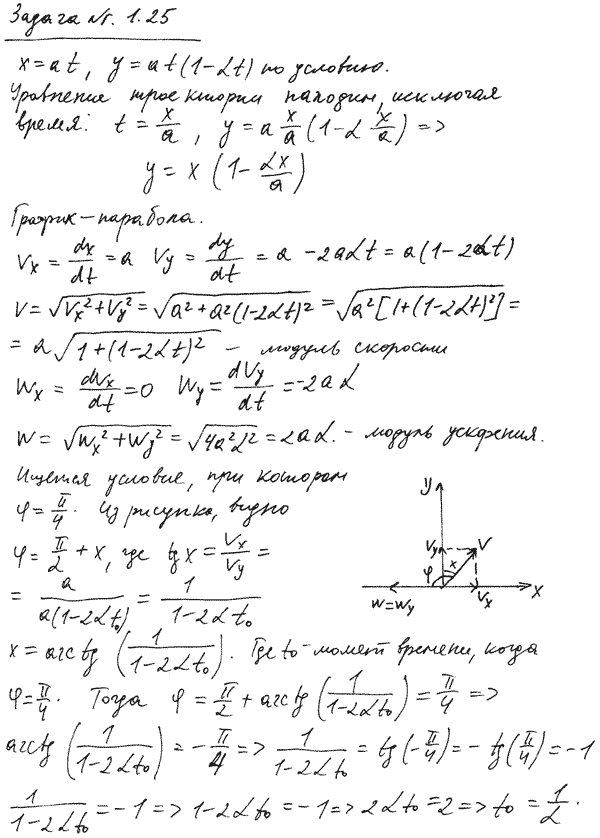 Задача №. 1.25
x = at, y = at(1-αt) по условию.
Уравнение траектории находим, исключая
время: t = x/a, y = a x/a (1-α x/a) =>
y = x (1 - αx/a)
График - парабола.
Vx = dx/dt = a Vy = dy/dt = a - 2aαt = a(1-2αt)
V = √(Vx²+Vy²) = √(a²+a²(1-2αt)²) = √(a²[1+(1-2αt)²]) =
= a√(1+(1-2αt)²) - модуль скорости
Wx = dVx/dt = 0 Wy = dVy/dt = -2aα
W = √(Wx²+Wy²) = √(4a²α²) = 2aα. - модуль ускорения.
Ищется условие, при котором
φ = π/4. Из рисунка, видно
φ = π/2 + x, где tg x = Vx/Vy =
= a/(a(1-2αt₀)) = 1/(1-2αt₀)
y
Vy V
φ x
W=Wy Vx x
x = arctg (1/(1-2αt₀)). Где t₀ - момент времени, когда
φ = π/4. Тогда φ = π/2 + arctg (1/(1-2αt₀)) = π/4 =>
arctg (1/(1-2αt₀)) = -π/4 => 1/(1-2αt₀) = tg(-π/4) = -tg(π/4) = -1
1/(1-2αt₀) = -1 => 1-2αt₀ = -1 => 2αt₀ = 2 => t₀ = 1/α.